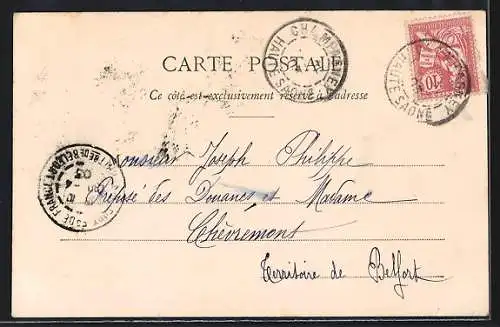 CARTE POSTALE
CHAMPAGNEY
HAUTE SAÔNE
CHAMPAGNEY
HAUTE SAÔNE
10
Ce côté est exclusivement réservé à l'adresse
Monsieur Joseph Philippe
Préposé des Douanes et Madame
Chèvremont
Territoire de Belfort
03